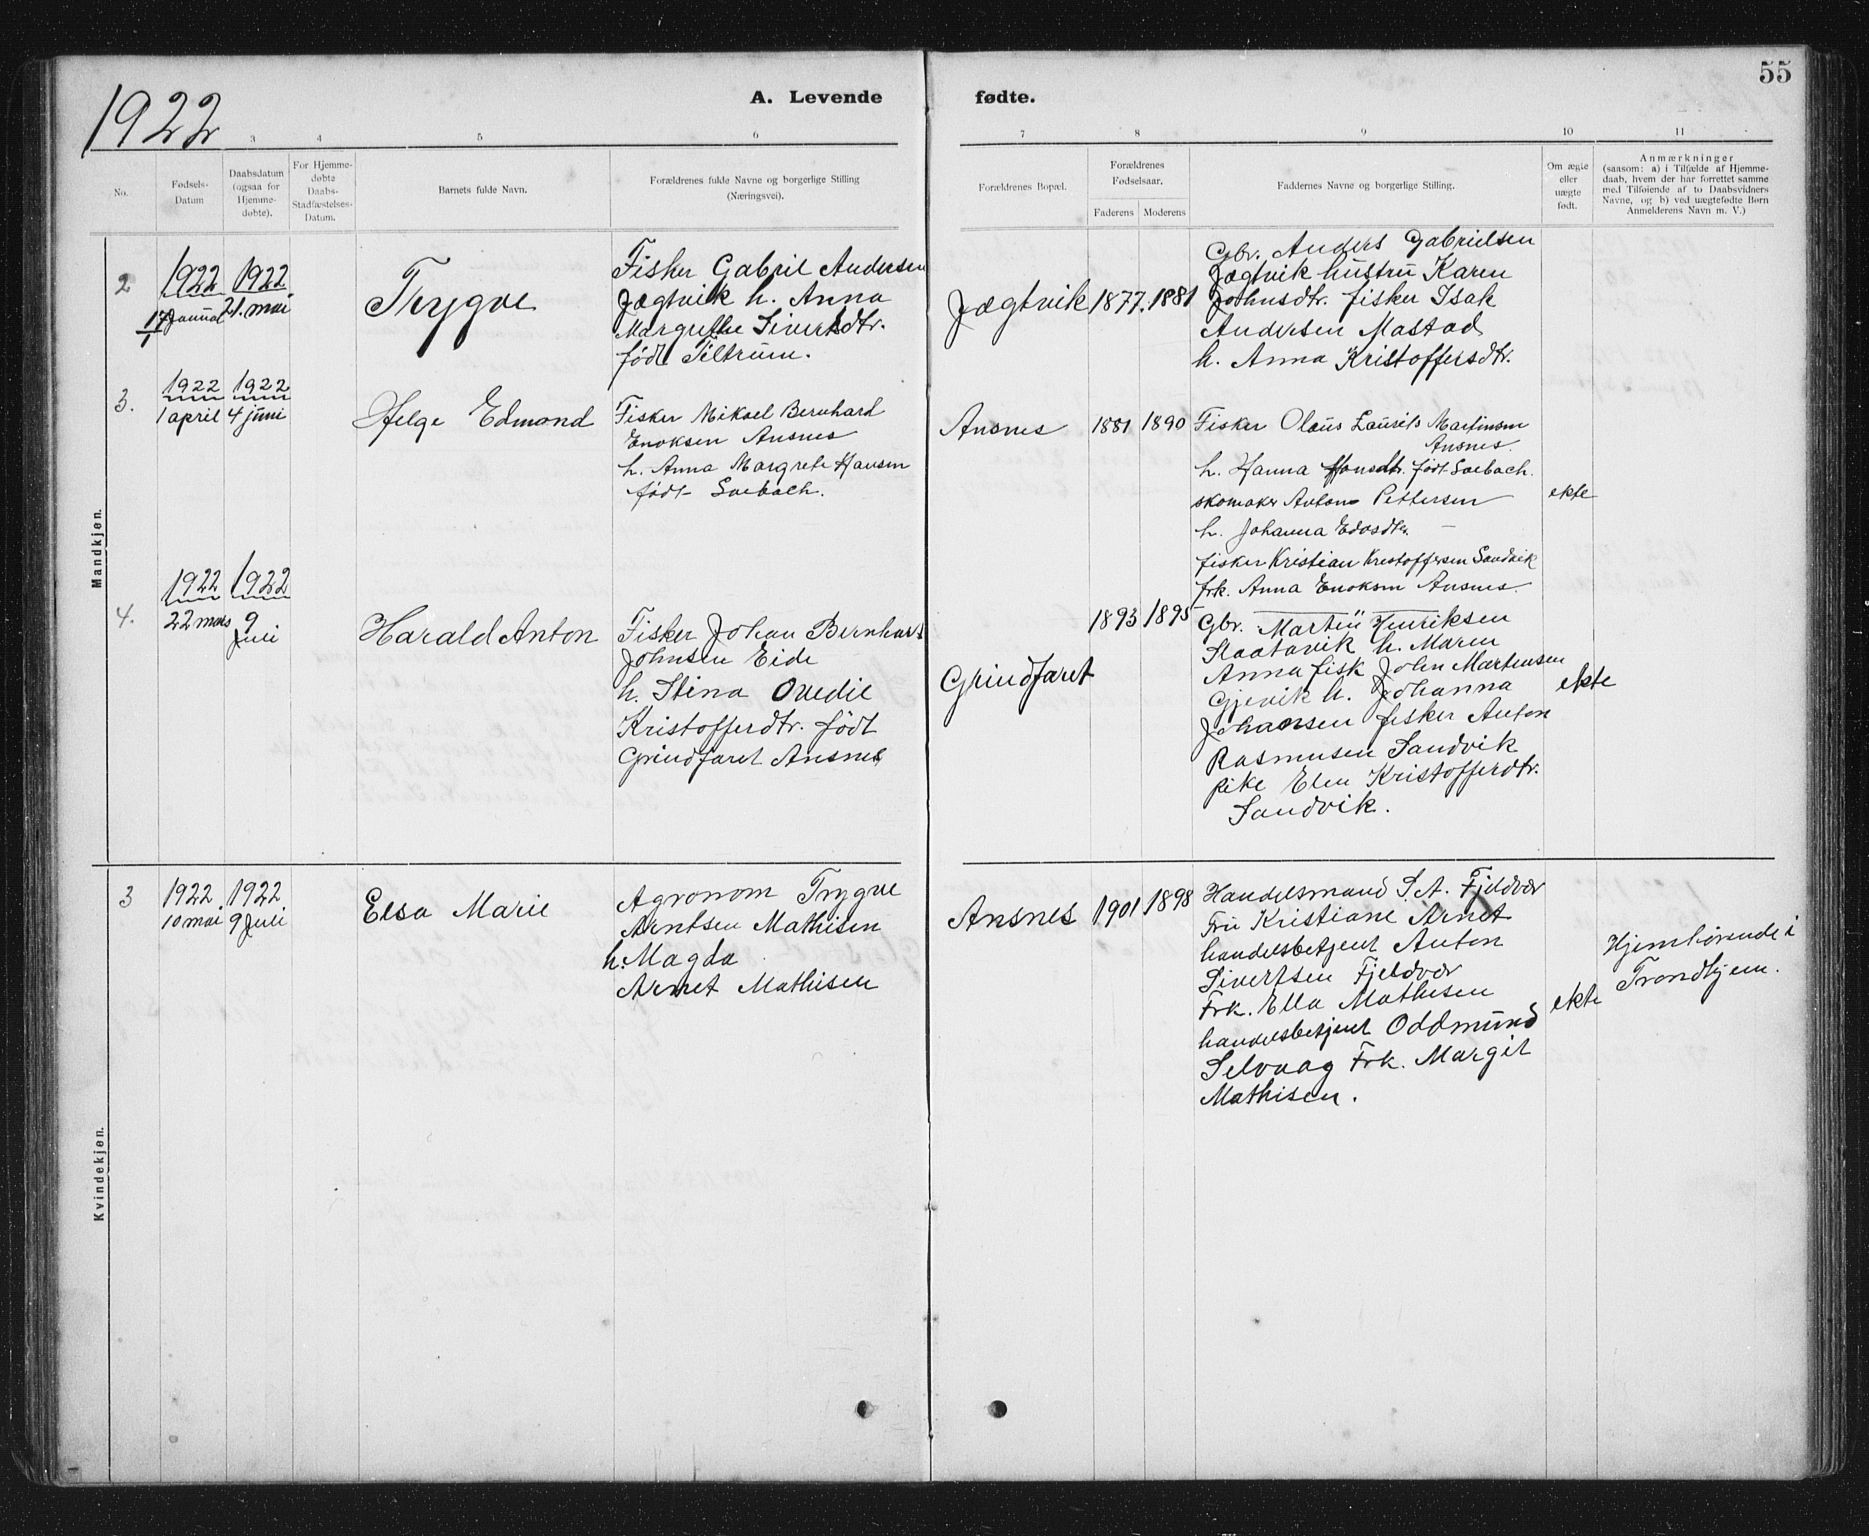 1922
A. Levende fødte.
55
3 4 5 6 7 8 9 10 11
No.
Fødsels-
Datum
Daabsdatum
(ogsaa for
Hjemme-
døbte).
For Hjemme-
døbte
Daabs-
Stadfæstelses-
Datum.
Barnets fulde Navn.
Forældrenes fulde Navne og borgerlige Stilling
(Næringsvei).
Forældrenes Bopæl.
Forældrenes
Fødselsaar.
Faderens Moderens
Faddernes Navne og borgerlige Stilling.
Om ægte
eller
uægte
født.
Anmærkninger
(saasom: a) i Tilfælde af Hjemme-
daab, hvem der har forrettet samme
med Tilføiende af to Daabsvidners
Navne, og b) ved uægtefødte Børn
Anmelderens Navn m. V.)
Mandkjøn.
2
1922
17
1922
21. mai
Trygve
Fisker Gabriel Andersen
Jægtvik h. Anna
Margrethe Sivertsdtr.
født Tiltrum.
Jægtvik
1877. 1881
Gbr. Anders Gabrielsen
Jægtvik hustru Karen
Johnsdtr. fisker Isak
Andersen Mastad
h. Anna Kristoffersdtr.
3.
1922
1 april
1922
4 juni
Helge Edmond
Fisker Mikael Bernhard
Enoksen Ansnes
h. Anna Margrete Hansen
født
Ansnes
1881 1890
Fisker Olaus Laurits Martinsen
Ansnes.
h. Hanna Hansdtr. født
skomaker Anton Pettersen
h. Johanna
fisker Kristian Kristoffersen Sandvik
frk. Anna Enoksen Ansnes.
ekte
4.
1922
22 mars
1922
9
Juli
Harald Anton
Fisker Johan Bernhard
Johnsen Eide
h. Stina Ovedie
Kristofferdtr. født
Grindfaret Ansnes
Grindfaret
1893 1895
Gbr. Martin Henriksen
h. Maren
Anna fisk John Martensen
Gjevik h. Johanna
Johansen fisker Anton
Rasmusen Sandvik
pike Elen Kristofferdtr.
Sandvik.
ekte
Kvindekjøn.
3
1922
10 mai
1922
9 Juli
Elsa Marie
Agronom Trygve
Arntsen Mathisen
h. Magda
Arnet Mathisen
Ansnes
1901 1898
Handelsmand S. A. Fjeldvær
Fru Kristiane Arnet
handelsbetjent Anton
Sivertsen Fjeldvær
Frk. Ella Mathisen
handelsbetjent Oddmund
Selvaag Frk. Margit
Mathisen.
ekte
Hjemhørende i
Trondhjem.